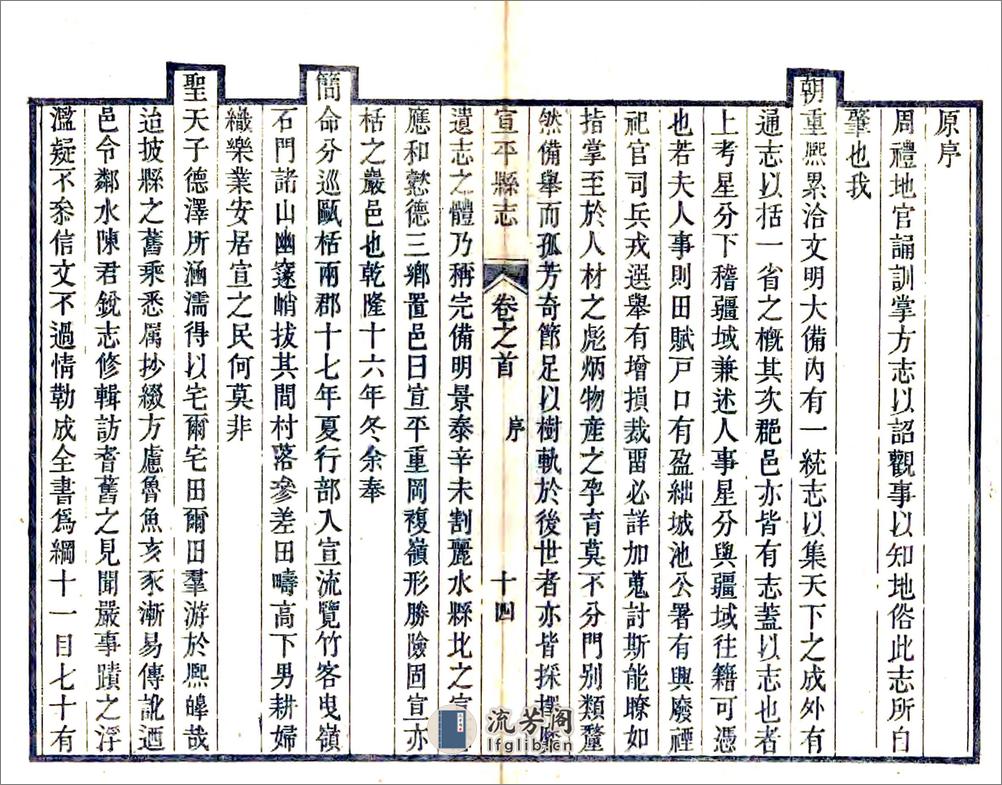 原序
周禮地官誦訓掌方志以詔觀事以知地俗此志所自
肇也我
朝重熙累洽文明大備內有一統志以集天下之成外有
通志以括一省之槪其次郡邑亦皆有志蓋以志也者
上考星分下稽疆域兼述人事星分與疆域往籍可憑
也若夫人事則田賦戸口有盈絀城池公署有興廢禋
祀官司兵戎選舉有增損裁畱必詳加蒐討斯能瞭如
指掌至於人材之彪炳物産之孕育莫不分門别類釐
然備舉而孤芳奇節足以樹軌於後世者亦皆採
宣平縣志 卷之首 序 十四
遺志之體乃稱完備明景泰辛未割麗水縣比之宣
應和懿德三鄉置邑曰宣平重岡複嶺形勝險固宣亦
栝之巖邑也乾隆十六年冬余奉
簡命分巡甌栝兩郡十七年夏行部入宣流覽竹客曳嶺
石門諸山幽邃峭拔其間村落參差田疇高下男耕婦
織樂業安居宣之民何莫非
聖天子德澤所涵濡得以宅爾宅田爾田羣游於熙皞哉
迨披縣之舊乘悉属抄綴方慮魯魚亥豕漸易傳訛迺
邑令鄰水陳君銳志修輯訪耆舊之見聞嚴事蹟之浮
濫疑不叅信文不過情勒成全書爲綱十一目七十有
流芳阁
lfglib.cn